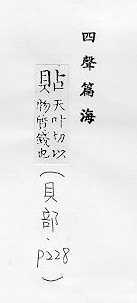 四聲篇海
貼 天叶切以
物質錢也
(貝部·P228)